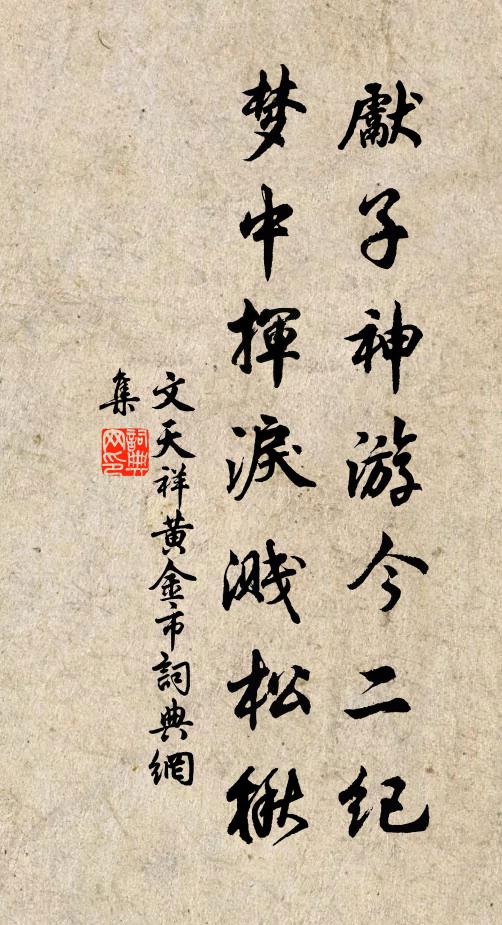 獻子神游今二紀
梦中揮淚溅松楸
文天祥黄金市詞典網
集
詞典网印